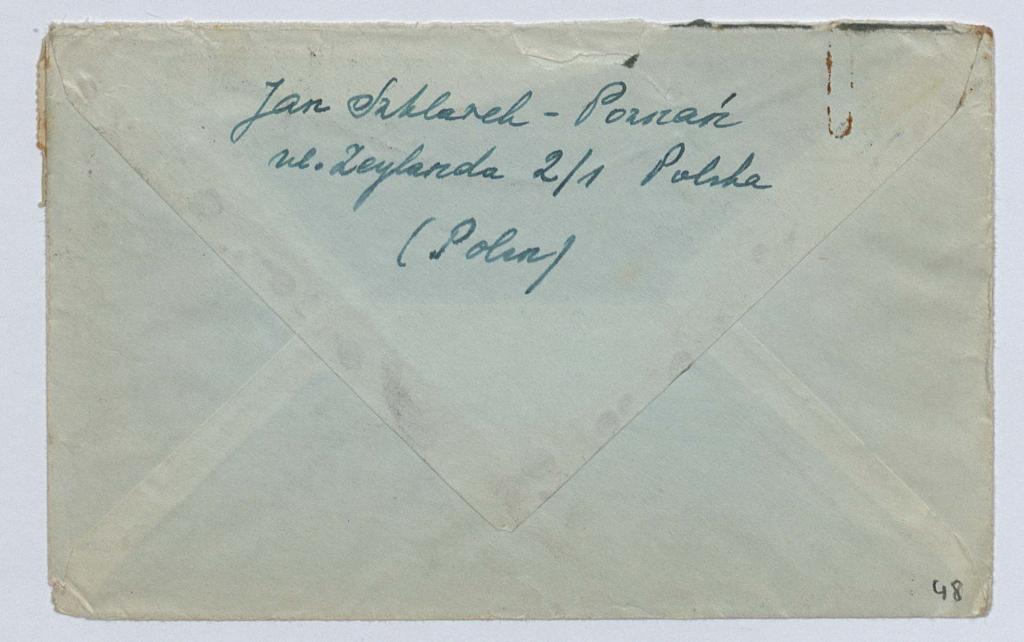 Jan Szklarek - Poznań
ul. Zeylanda 2/1 Polska
(Polen)
48